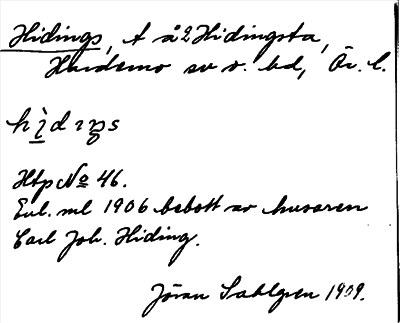 Hidings, t å 2 Hidingsta,
Hardemo sn o. hd, Ör. l.
hìdıŋs
Htp No 46.
Enl. ml 1906 bebott av husaren
Carl Joh. Hiding.
Jöran Sahlgren 1909.